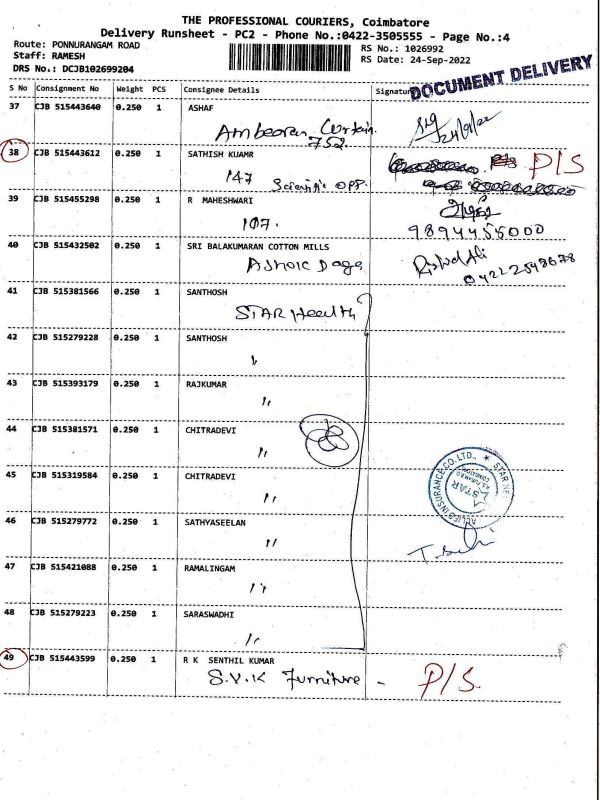 THE PROFESSIONAL COURIERS, Coimbatore
Delivery Runsheet - PC2 - Phone No.:0422-3505555 - Page No.:4
Route: PONNURANGAM ROAD
RS No.: 1026992
Staff: RAMESH
RS Date: 24-Sep-2022
DRS No.: DCJB102699204
DOCUMENT DELIVERY
S No Consignment No Weight PCS Consignee Details Signature
37 CJB 515443640 0.250 1 ASHAF
24/9/22
752
38 CJB 515443612 0.250 1 SATHISH KUAMR P/S
147 Scientific OPP.
39 CJB 515455298 0.250 1 R MAHESHWARI
107. 9894455000
40 CJB 515432502 0.250 1 SRI BALAKUMARAN COTTON MILLS
Ashok Daga
41 CJB 515381566 0.250 1 SANTHOSH
STAR Health
42 CJB 515279228 0.250 1 SANTHOSH
"
43 CJB 515393179 0.250 1 RAJKUMAR
"
44 CJB 515381571 0.250 1 CHITRADEVI
"
45 CJB 515319584 0.250 1 CHITRADEVI
"
46 CJB 515279772 0.250 1 SATHYASEELAN
"
47 CJB 515421088 0.250 1 RAMALINGAM
"
48 CJB 515279223 0.250 1 SARASWADHI
"
49 CJB 515443599 0.250 1 R K SENTHIL KUMAR
S.V.K Furniture - P/S.